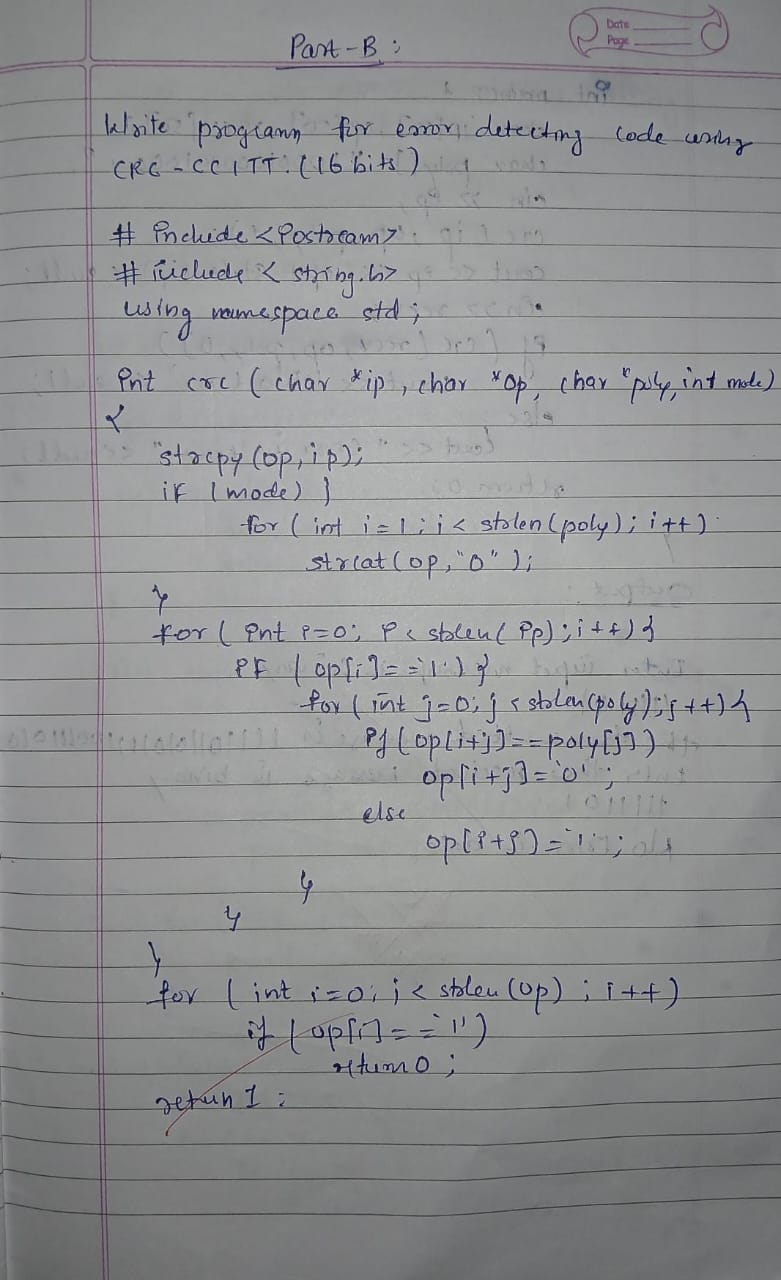 Date
Page
Part-B :
Write program for error detecting code using
CRC-CCITT. (16 bits)
# include <iostream>
# include < string.h>
using namespace std ;
int crc ( char *ip , char *op, char *poly, int mode)
{
strcpy (op, ip);
if (mode) {
for ( int i=1 ; i < strlen (poly) ; i++)
strcat ( op, "0" );
}
for ( int i=0; i < strlen( ip) ; i++) {
if ( op[i] == '1') {
for ( int j=0; j < strlen(poly); j++) {
if ( op[i+j] == poly[j])
op[i+j] = '0' ;
else
op[i+j] = '1' ;
}
}
}
for ( int i=0; i < strlen (op) ; i++)
if ( op[i] == '1')
return 0 ;
retun 1 ;